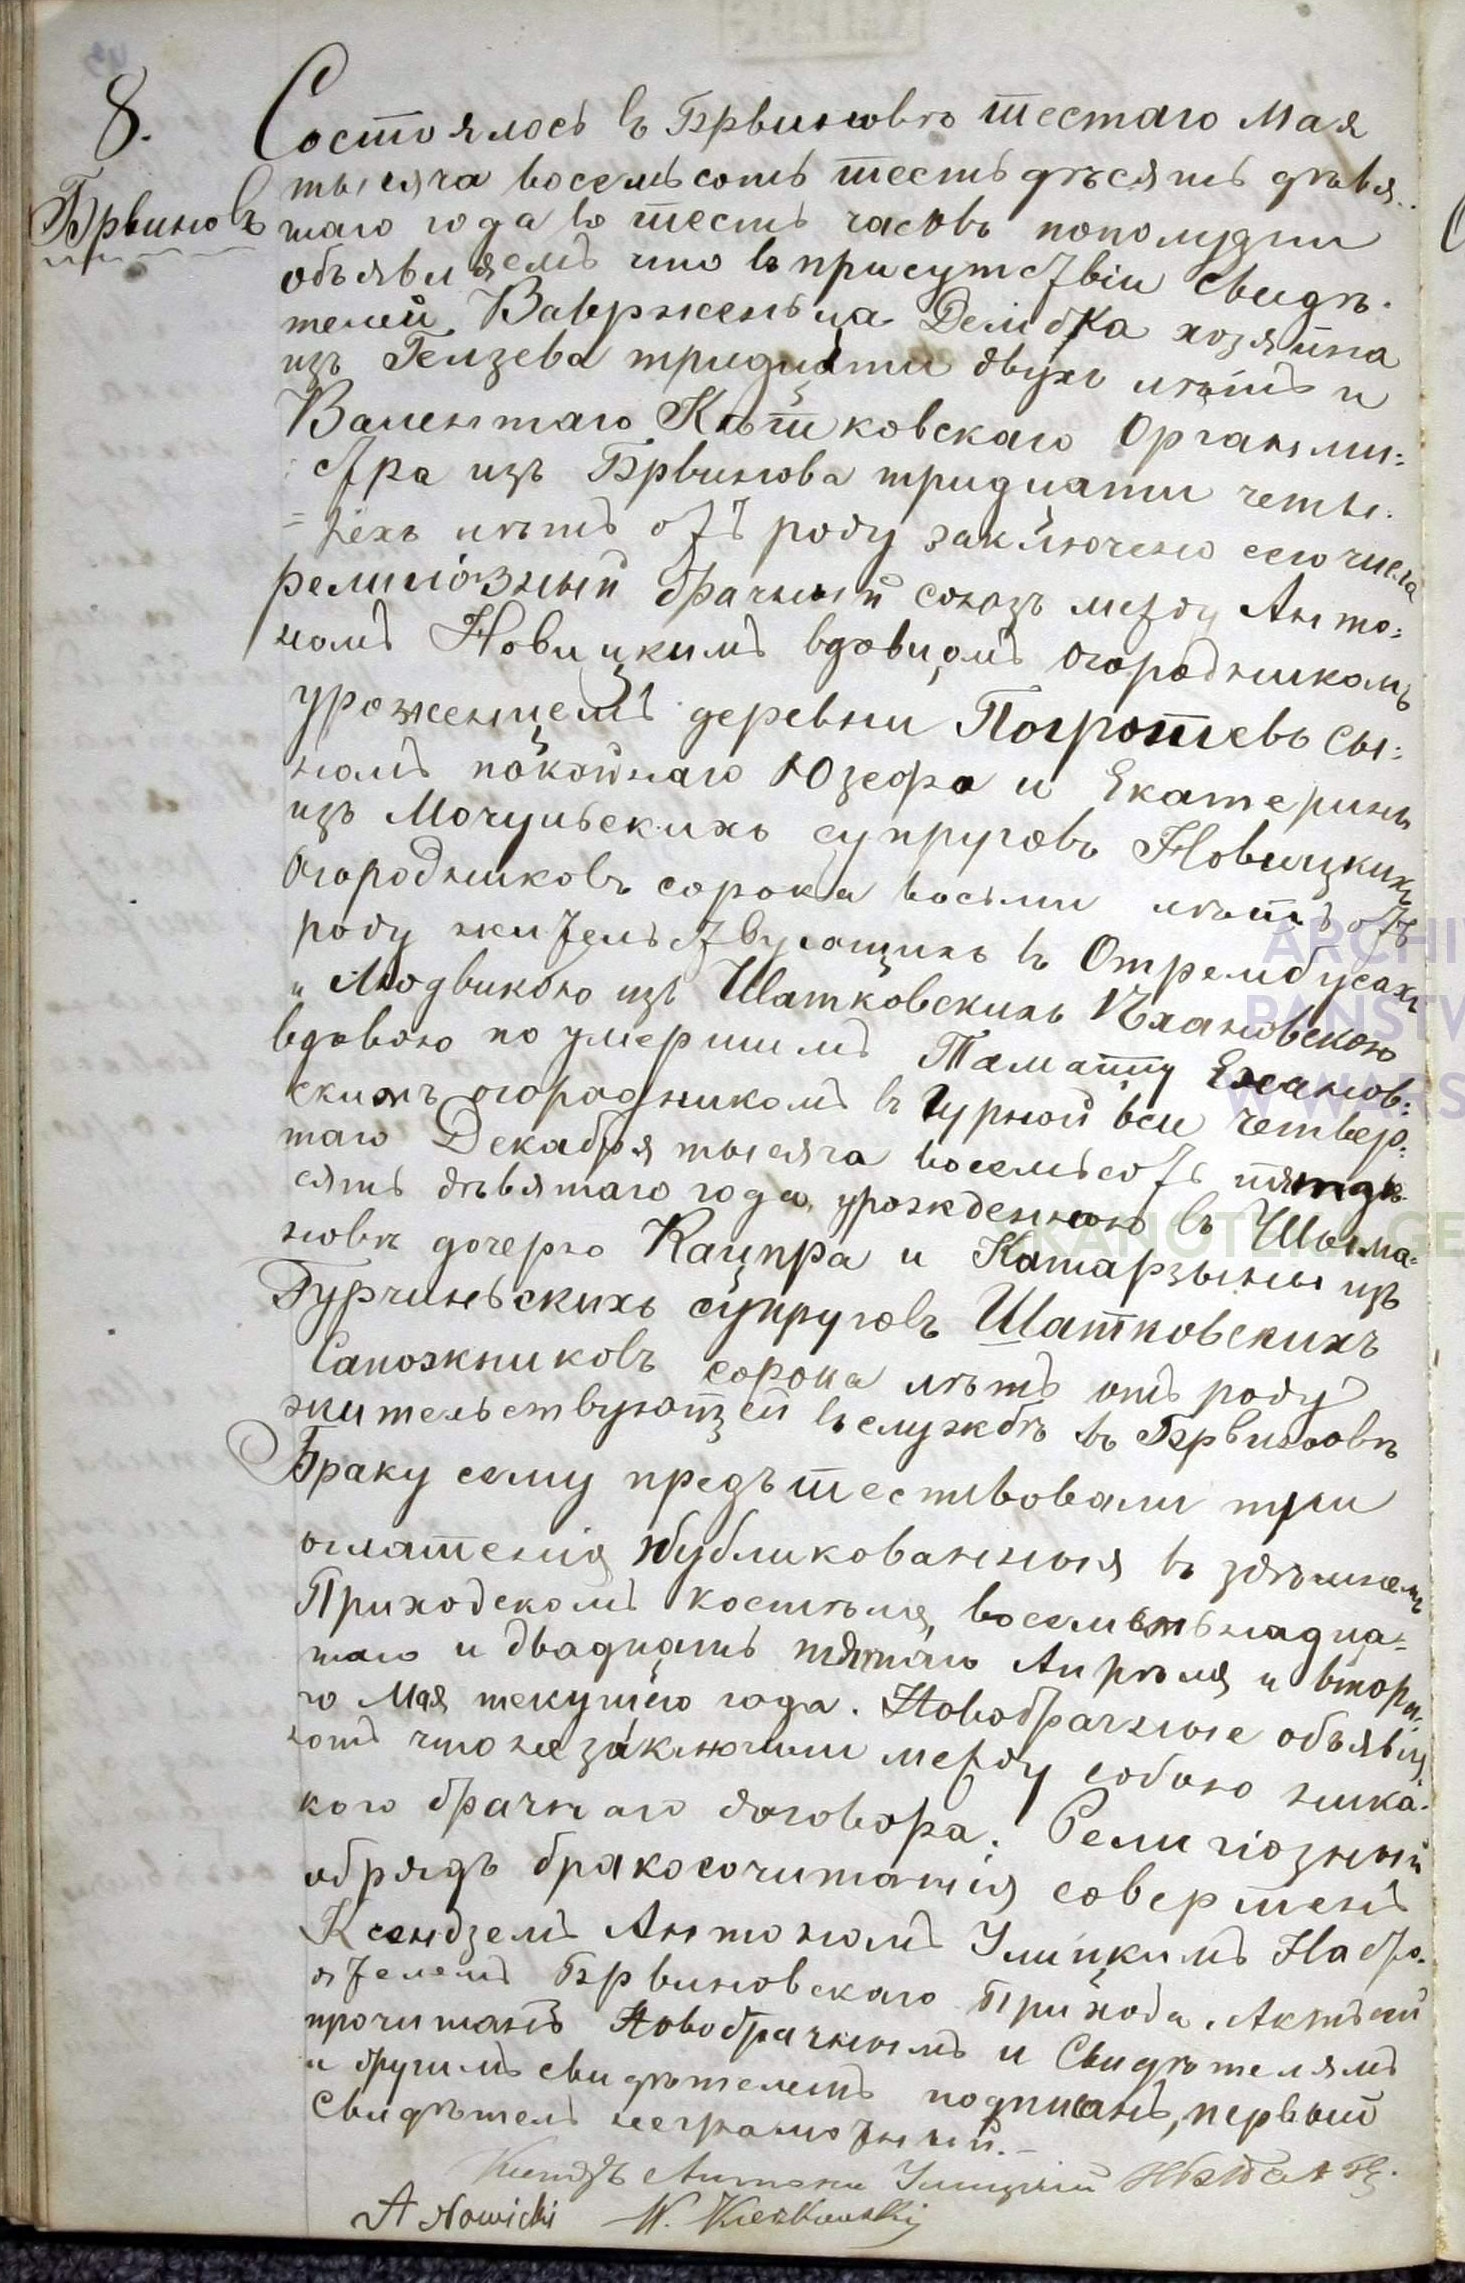 8.
Брвиновъ
Состоялось въ Брвиновѣ шестаго Мая
тысяча восемьсотъ шестьдѣсятъ дѣвя-
таго года въ шесть часовъ пополудни
объявляемъ что въ присутствіи свидѣ-
телей, Ваврженьца Делибка хозяина
изъ тридцати двухъ лѣтъ и
Валентаго Органми-
стра изъ Брвинова тридцати четы-
рёхъ лѣтъ отъ роду заключено сего числа
религіозный брачный союзъ между Анто-
номъ Новицкимъ вдовцомъ огородникомъ
уроженцемъ деревни Погрошевъ сы-
номъ покойнаго Юзефа и Екатерины
изъ Мочульскихъ супруговъ Новицкихъ
огородниковъ сорока восьми лѣтъ отъ
роду жительствующимъ въ Отрембусахъ
и Людвикою изъ Шатковскихъ
вдовою по умершимъ Томашу Ехановъ-
скимъ огородникомъ въ Гурной вси четвер-
таго Декабря тысяча восемьсотъ пятьдѣ-
сятъ дѣвятаго года, урожденною въ Шома-
новѣ дочерью Кацпра и Катарзыны изъ
Гурчиньскихъ супруговъ Шатковскихъ
Сапожниковъ сорока лѣтъ отъ роду
жительствующей въ службѣ въ Брвиновѣ
Браку сему предъшествовали три
оглашенія публикованныя въ здѣшнемъ
Приходскомъ костелѣ, восемьнадца-
таго и двадцать пятаго Апрѣля и втора-
го Мая текущего года. Новобрачные объявля-
ютъ что не заключили между собою ника-
кого брачнаго договора. Религіозный
обрядъ бракосочитанія совершенъ
Ксендземъ Антономъ Улицкимъ Насто-
ятелемъ Брвиновскаго Прихода. Актъ сей
прочитанъ Новобрачнымъ и Свидѣтелямъ
и другимъ свидѣтелемъ подписанъ, первый
Свидѣтель неграмотный.
Ксендзъ Антони Улицкій
A Nowicki W. Kierkowski
ARCHI
PAŃSTW
W WARS
SKANOTEKA GE